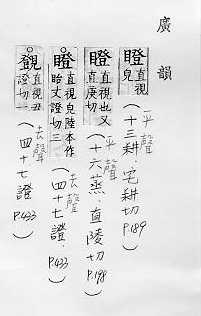 廣韻
瞪 直視皃 (十三耕、宅耕切 P.189) 平聲
瞪 直視也又直庚切 (十六蒸、直陵切 P.198) 平聲
瞪 直視皃陸本作眙丈證切三 (四十七證、P.433) 去聲
覴 直視丑證切 (四十七證 P.433) 去聲